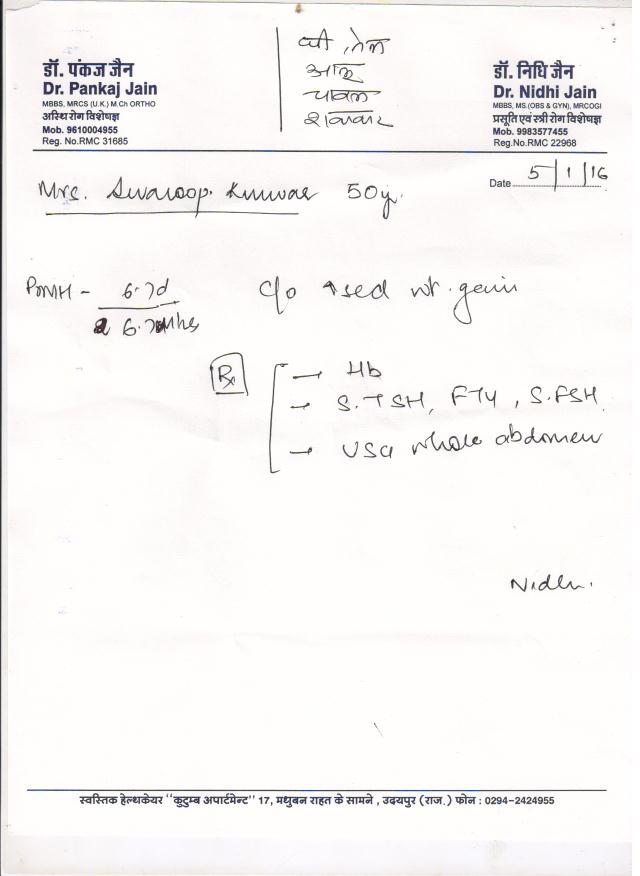 घी, तेल
आलू
चावल
शक्कर
डॉ. पंकज जैन
Dr. Pankaj Jain
MBBS, MRCS (U.K.) M.Ch ORTHO
अस्थि रोग विशेषज्ञ
Mob. 9610004955
Reg.No.RMC 31685
डॉ. निधि जैन
Dr. Nidhi Jain
MBBS, MS.(OBS & GYN), MRCOGI
प्रसूति एवं स्त्री रोग विशेषज्ञ
Mob. 9983577455
Reg.No.RMC 22968
Date 5/1/16
Mrs. Swaroop Kunwar 50y.
PMH - 6-7d
6-7 Mths
c/o ↑sed wt. gain
Rx
→ Hb
→ S.TSH, FT4, S.FSH
→ USG whole abdomen
Nidhi.
स्वस्तिक हेल्थकेयर "कुटुम्ब अपार्टमेन्ट" 17, मधुबन राहत के सामने, उदयपुर (राज.) फोन : 0294-2424955